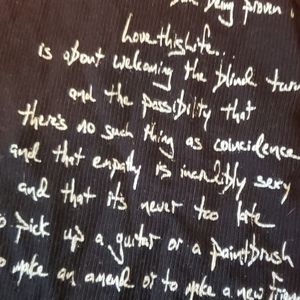 being proven
Lovethislife...
is about welcoming the blind turn
and the possibility that
there's no such thing as coincidence
and that empathy is incredibly sexy
and that its never too late
to pick up a guitar or a paintbrush
to make an amend or to make a new friend